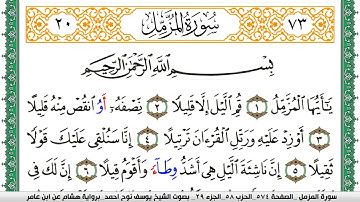 ٧٣ سُورَةُ المُزَّمِّلِ ٢٠
بِسْمِ اللَّهِ الرَّحْمَٰنِ الرَّحِيمِ
يَٰٓأَيُّهَا ٱلْمُزَّمِّلُ ١ قُمِ ٱلَّيْلَ إِلَّا قَلِيلًا ٢ نِّصْفَهُۥٓ أَوُ ٱنقُصْ مِنْهُ قَلِيلًا
٣ أَوْ زِدْ عَلَيْهِ وَرَتِّلِ ٱلْقُرْءَانَ تَرْتِيلًا ٤ إِنَّا سَنُلْقِى عَلَيْكَ قَوْلًا
ثَقِيلًا ٥ إِنَّ نَاشِئَةَ ٱلَّيْلِ هِىَ أَشَدُّ وِطَآءً وَأَقْوَمُ قِيلًا ٦ إِنَّ لَكَ فِى
سورة المزمل . الصفحة ٥٧٤ . الحزب ٥٨ . الجزء ٢٩ . بصوت الشيخ يوسف نوح احمد برواية هشام عن ابن عامر